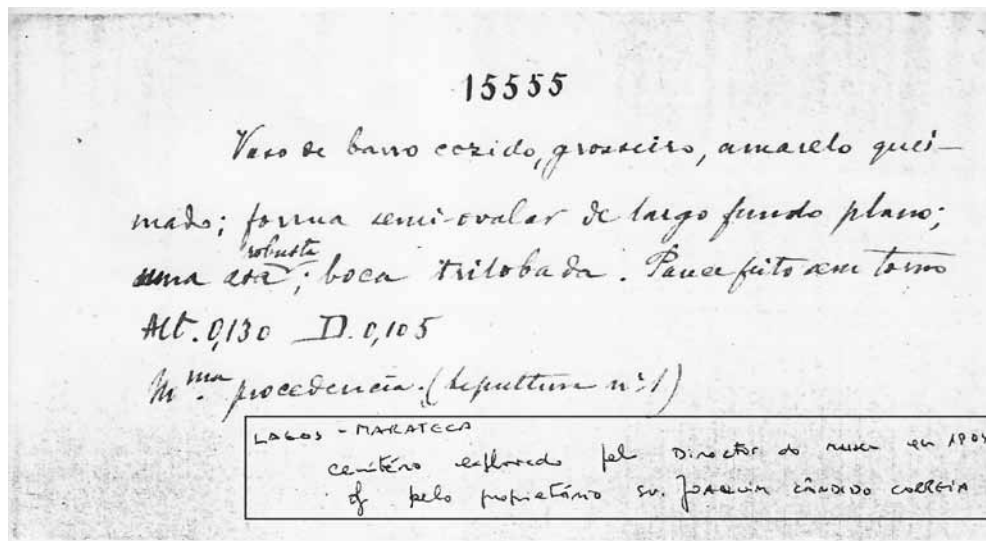 15555
Vaso de barro cozido, grosseiro, amarelo quei-
mado; forma semi-ovalar de largo fundo plano;
uma asa robusta; boca trilobada. Parece feito sem torno
Alt. 0,130 D. 0,105
M.ma procedencia. (Sepultura nº 1)
LAGOS - MARATECA
cemitério explorado pelo Director do museu em
of pelo proprietário sr. JOAQUIM CÂNDIDO CORREIA